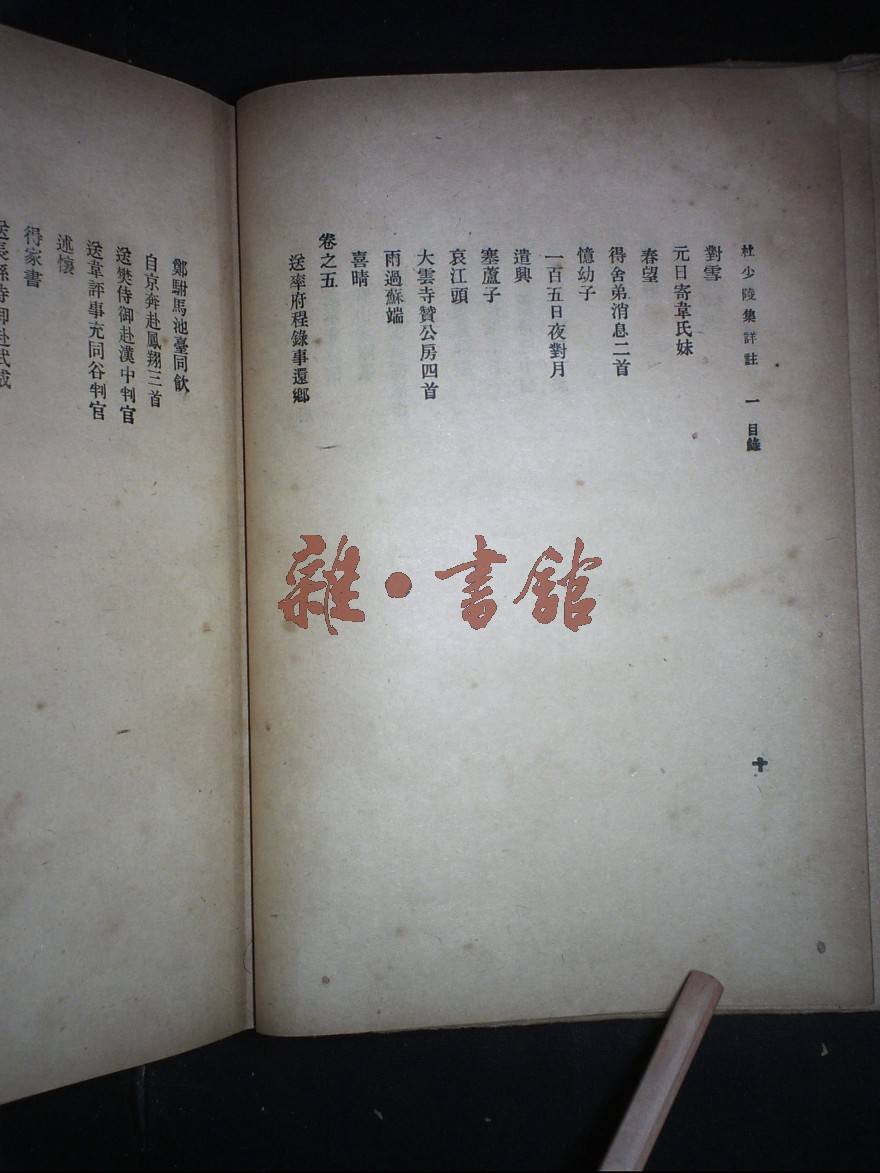 杜少陵集詳註 一 目錄
十
對雪
元日寄韋氏妹
春望
得舍弟消息二首
憶幼子
一百五日夜對月
遣興
塞蘆子
哀江頭
大雲寺贊公房四首
雨過蘇端
喜晴
卷之五
送率府程錄事還鄉
鄭駙馬池臺同飲
自京奔赴鳳翔三首
送樊侍御赴漢中判官
送韋評事充同谷判官
述懷
得家書
送長孫侍御赴武威
雜•書館